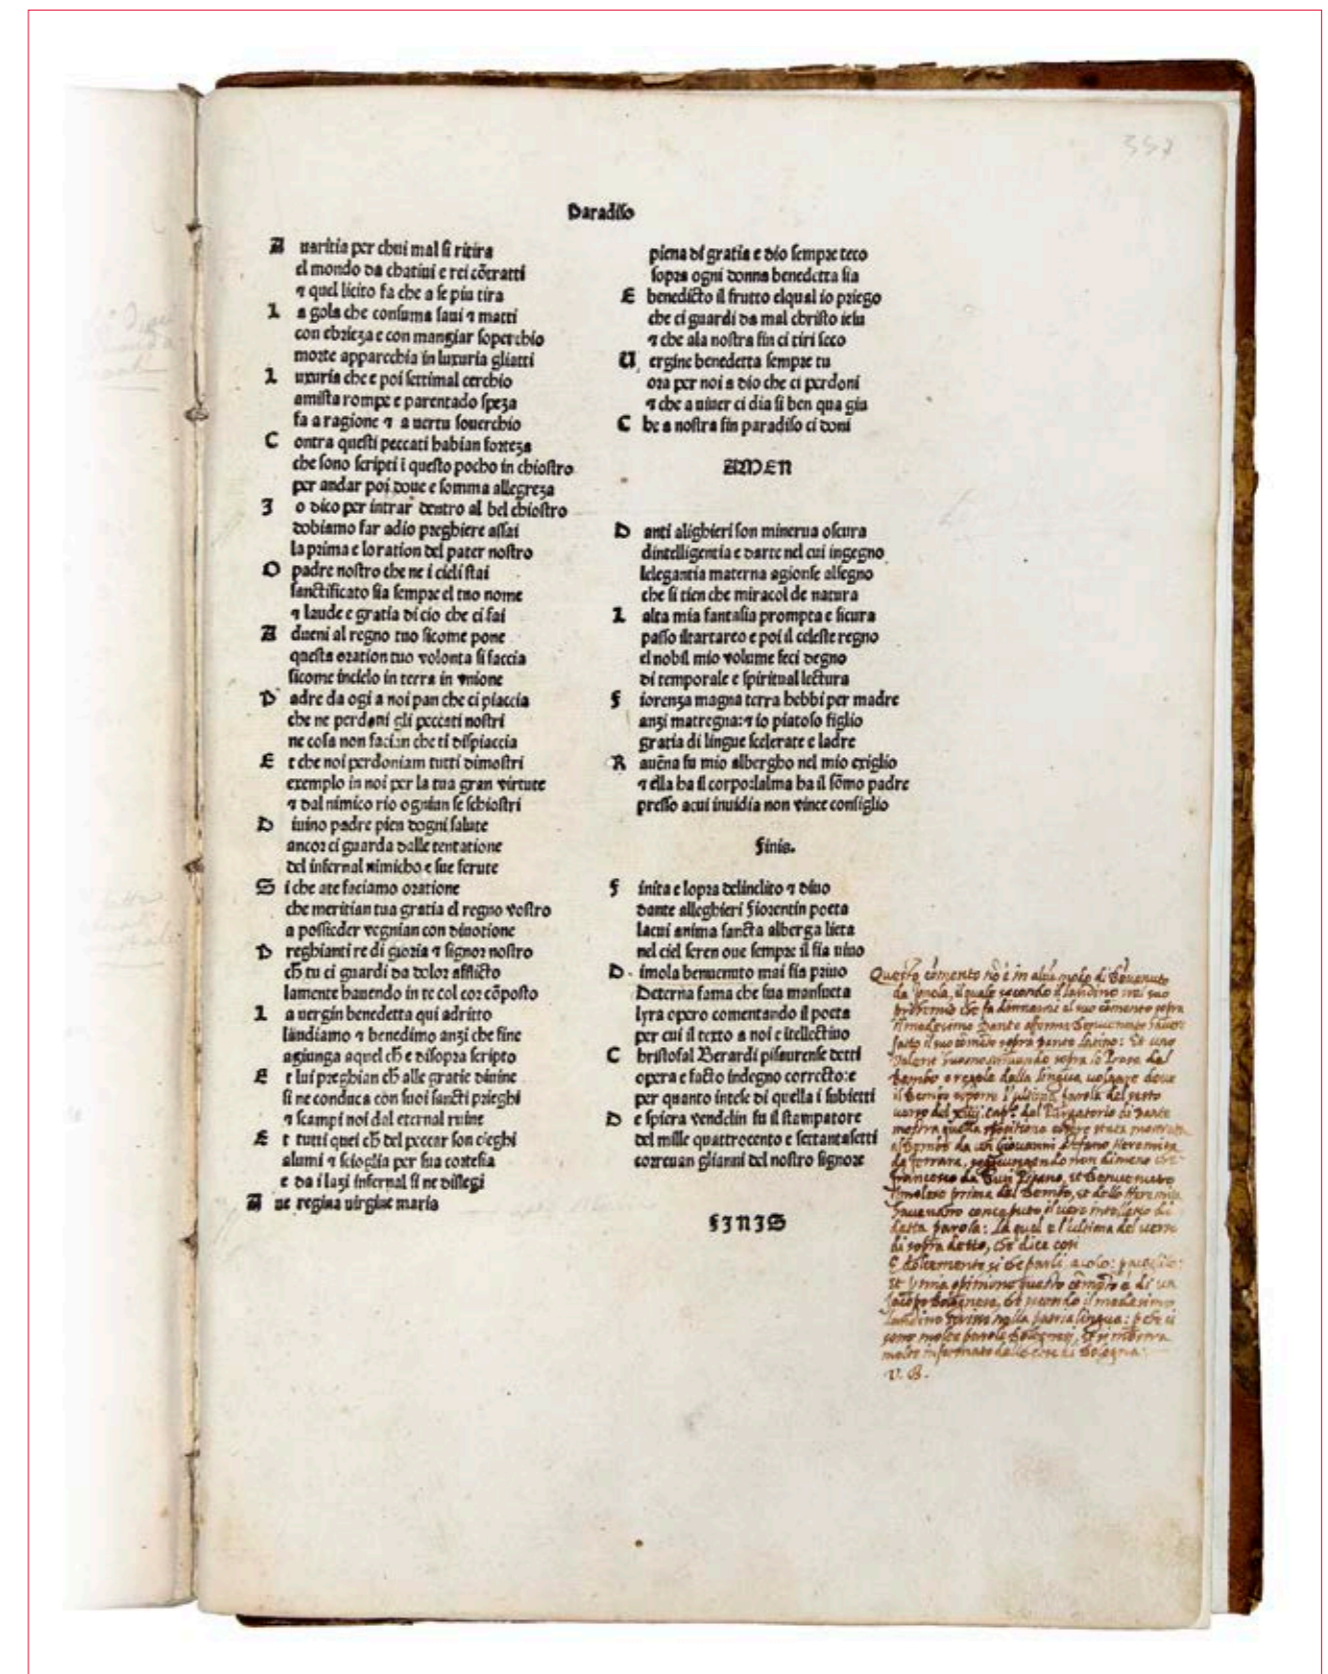 357
Paradiso
A uaritia per chui mal si ritira
el mondo da chatiui e rei cõtratti
⁊ quel licito fa che a se piu tira
L a gola che consuma saui ⁊ matti
con ebrieza e con mangiar soperchio
morte apparechia in luxuria gliatti
L uxuria che e poi settimal cerchio
amista rompe e parentado speza
fa a ragione ⁊ a uertu souerchio
C ontra questi peccati habian forteza
che sono scripti ĩ questo pocho in chiostro
per andar poi doue e somma allegreza
I o dico per intrar dentro al bel chiostro
dobiamo far adio preghiere assai
la prima e loration del pater nostro
O padre nostro che ne i cieli stai
sanctificato sia sempre el tuo nome
⁊ laude e gratia di cio che ci fai
A dueni al regno tuo sicome pone
questa oration tuo volonta si faccia
sicome incielo in terra in vnione
P adre da ogi a noi pan che ci piaccia
che ne perdoni gli peccati nostri
ne cosa non facian che ti dispiaccia
E t che noi perdoniam tutti dimostri
exemplo in noi per la tua gran virtute
⁊ dal nimico rio ognian se schiostri
D iuino padre pien dogni salute
ancor ci guarda dalle tentatione
del infernal nimicho e sue ferute
S i che ate faciamo oratione
che meritian tua gratia el regno vostro
a possieder vegnian con diuotione
P reghianti re di gloria ⁊ signor nostro
ch̃ tu ci guardi da dolor afflicto
lamente hauendo in te col cor cõposto
L a uergin benedetta qui adritto
laudiamo ⁊ benedimo anzi che fine
agiunga aquel ch̃ e disopra scripto
E t lui preghian ch̃ alle gratie diuine
si ne conduca con suoi sancti prieghi
⁊ scampi noi dal eternal ruine
E t tutti quei ch̃ del peccar son cieghi
alumi ⁊ scioglia per sua cortesia
e da i lazi infernal si ne dislegi
A ue regina uirgine maria
piena di gratia e dio sempre teco
sopra ogni donna benedetta sia
E benedicto il frutto elqual io priego
che ci guardi da mal christo iesu
⁊ che ala nostra fin ci tiri seco
U ergine benedetta sempre tu
ora per noi a dio che ci perdoni
⁊ che a uiuer ci dia si ben qua giu
C he a nostra fin paradiso ci doni
AMEN
D anti alighieri son minerua oscura
dintelligentia e darte nel cui ingegno
lelegantia materna agionse alsegno
che si tien che miracol de natura
L alta mia fantasia prompta e sicura
passo iltartareo e poi il celeste regno
el nobil mio volume feci degno
di temporale e spiritual lectura
F iorenza magna terra hebbi per madre
anzi matregna:⁊ io piatoso figlio
gratia di lingue scelerate e ladre
R auẽna fu mio albergho nel mio exiglio
⁊ ella ha il corpo:lalma ha il sõmo padre
presso acui inuidia non vince consiglio
Finis.
F inita e lopra delinclito ⁊ diuo
dante alleghieri Fiorentin poeta
lacui anima sancta alberga lieta
nel ciel seren oue sempre il fia uiuo
D imola benuenuto mai fia priuo
Deterna fama che sua mansueta
lyra opero comentando il poeta
per cui il texto a noi e ĩtellectiuo
C hristofal Berardi pisaurense detti
opera e facto indegno correcto:e
per quanto intese di quella i subietti
D e spiera vendelin fu il stampatore
del mille quattrocento e settantasetti
correuan glianni del nostro signore
FINIS
Questo comento nõ è in alcũ modo di Bẽuenuto
da Imola, il quale secondo il landino nel suo
prohemio che fa dinnanzi al suo cõmento sopra
il medesimo Dante afferma Benuenuto hauere
fatto il suo comẽto sopra Dante latino: Et uno
Valent' huomo scriuendo sopra le Prose del
Bembo e regole della lingua uolgare doue
il Bembo espone l'ultima parola del sesto
uerso del xxiiij. capº. del Purgatorio di Dante
mostra quella spositione essere stata mostrata
al Bembo da un Giouanni Stefano Heremita
da Ferrara, soggiungendo non dimeno che
francesco da Buti Pisano, et Benuenuto
Imolese prima del Bembo, et dello Heremita
haueuano conosciuto il uero intelletto di
detta parola: la qual è l'ultima del uerso
di sopra detto, che dice così
E dolcemente si che parli acolo:
Et è mia opinione questo cõmẽto è di un
Jacopo Bolognese, che secondo il medesimo
landino scrisse nella patria lingua: perche ci
sono molte parole bolognesi, et si mostra
molto informato delle cose di Bologna.
V. B.